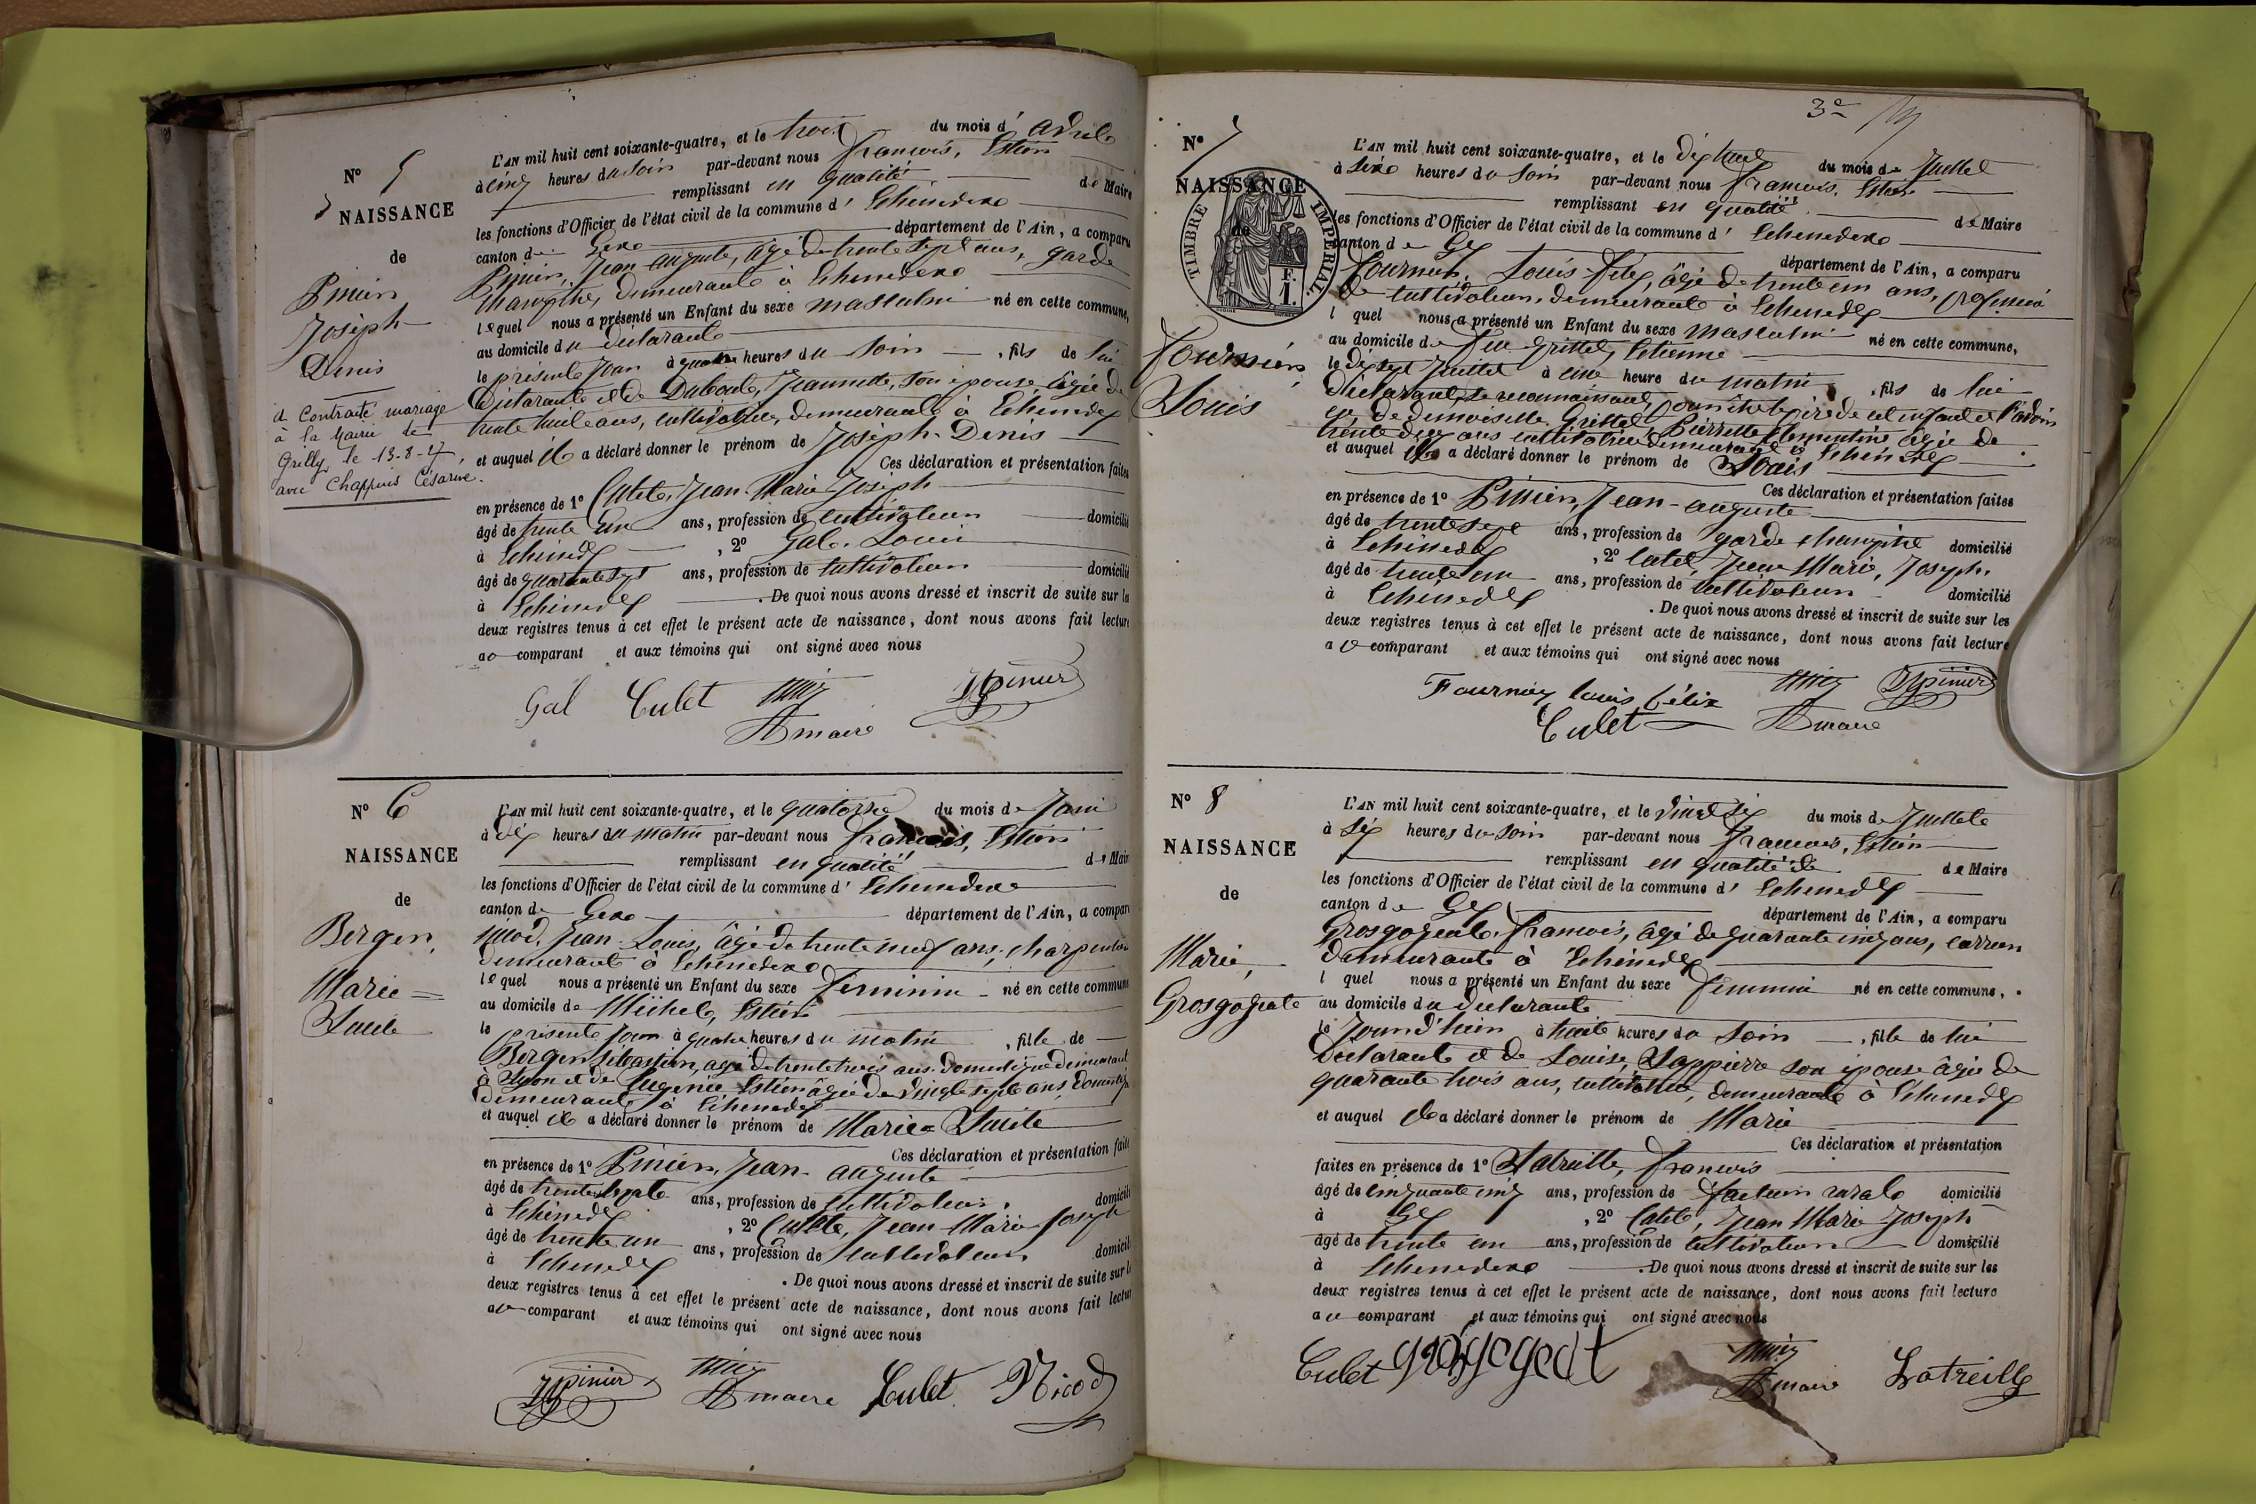 N° 5
NAISSANCE
de
Pinier
Joseph
Denis
à Contracté mariage
à la Mairie de
Grilly, le 13-8-27,
avec Chappuis Césarine.
L'AN mil huit cent soixante-quatre, et le trois du mois d' avril
à cinq heures du soir par-devant nous françois, Estier
remplissant en qualité de Maire
les fonctions d'Officier de l'état civil de la commune d' Echenevex
canton de Gex département de l'Ain, a comparu
Pinier, Jean auguste, âgé de trente sept ans, garde
champêtre, demeurant à Echenevex
lequel nous a présenté un Enfant du sexe masculin né en cette commune,
au domicile du déclarant
le présent jour à quatre heures du soir , fils de lui
Déclarant et de Dubout, Jeannette, son épouse, âgée de
trente huit ans, cultivatrice, demeurant à Echenevex
et auquel il a déclaré donner le prénom de Joseph-Denis
Ces déclaration et présentation faites
en présence de 1° Culet, Jean Marie Joseph
âgé de trente un ans, profession de cultivateur domicilié
à Echenevex , 2° Gal, Louis
âgé de quarante sept ans, profession de cultivateur domicilié
à Echenevex . De quoi nous avons dressé et inscrit de suite sur les
deux registres tenus à cet effet le présent acte de naissance, dont nous avons fait lecture
au comparant et aux témoins qui ont signé avec nous
Gal Culet Pinier
maire
N° 6
NAISSANCE
de
Berger,
Marie =
L'AN mil huit cent soixante-quatre, et le quatorze du mois de Juin
à dix heures du matin par-devant nous françois, Estier
remplissant en qualité de Maire
les fonctions d'Officier de l'état civil de la commune d' Echenevex
canton de Gex département de l'Ain, a comparu
Nicod, Jean-Louis, âgé de trente neuf ans, charpentier
demeurant à Echenevex
lequel nous a présenté un Enfant du sexe féminin né en cette commune
au domicile de Michel, Estier
le présent jour à quatre heures du matin , fille de
Berger Sébastien, âgé de trente trois ans, domestique demeurant
à Lyon et de Eugénie Estier âgée de vingt sept ans, domestique
demeurant à Echenevex
et auquel il a déclaré donner le prénom de Marie =
Ces déclaration et présentation faites
en présence de 1° Pinier, Jean-auguste
âgé de trente sept ans, profession de cultivateur, domicilié
à Echenevex , 2° Culet, Jean Marie Joseph
âgé de trente un ans, profession de cultivateur domicilié
à Echenevex . De quoi nous avons dressé et inscrit de suite sur les
deux registres tenus à cet effet le présent acte de naissance, dont nous avons fait lecture
au comparant et aux témoins qui ont signé avec nous
Pinier maire Culet Nicod
3e
N° 7
NAISSANCE
de
TIMBRE IMPÉRIAL
F.
1.
Fournier,
Louis
L'AN mil huit cent soixante-quatre, et le dix huit du mois de Juillet
à six heures du soir par-devant nous françois, Estier
remplissant en qualité de Maire
les fonctions d'Officier de l'état civil de la commune d' Echenevex
canton de Gex département de l'Ain, a comparu
Fournier, Louis-félix, âgé de trente un ans, profession
de cultivateur, demeurant à Echenevex
lequel nous a présenté un Enfant du sexe masculin né en cette commune,
au domicile de feu Grittel, Etienne
le dix sept Juillet à une heure du matin , fils de lui
Déclarant, se reconnaissant, pour être le père de cet enfant et l'avoir
eu de demoiselle Grittel, Pierrette Clémentine âgée de
trente deux ans cultivatrice, demeurant à Echenevex
et auquel il a déclaré donner le prénom de Louis
Ces déclaration et présentation faites
en présence de 1° Pinier, Jean-auguste
âgé de trente sept ans, profession de garde champêtre domicilié
à Echenevex , 2° Culet, Jean Marie, Joseph
âgé de trente un ans, profession de cultivateur domicilié
à Echenevex . De quoi nous avons dressé et inscrit de suite sur les
deux registres tenus à cet effet le présent acte de naissance, dont nous avons fait lecture
au comparant et aux témoins qui ont signé avec nous
Fournier louis félix Pinier
Culet maire
N° 8
NAISSANCE
de
Marie,
Grosgogeat
L'AN mil huit cent soixante-quatre, et le vingt six du mois de Juillet
à six heures du soir par-devant nous françois, Estier
remplissant en qualité de de Maire
les fonctions d'Officier de l'état civil de la commune d' Echenevex
canton de Gex département de l'Ain, a comparu
Grosgogeat, françois, âgé de quarante cinq ans, carrier
demeurant à Echenevex
l quel nous a présenté un Enfant du sexe féminin né en cette commune,
au domicile du déclarant
le jour d'hier à huit heures du soir , fille de lui
Déclarant et de Louise, Lappierre son épouse âgée de
quarante trois ans, cultivatrice, demeurant à Echenevex
et auquel il a déclaré donner le prénom de Marie
Ces déclaration et présentation
faites en présence de 1° Latreille, françois
âgé de cinquante cinq ans, profession de facteur rural domicilié
à Gex , 2° Culet, Jean Marie Joseph
âgé de trente un ans, profession de cultivateur domicilié
à Echenevex . De quoi nous avons dressé et inscrit de suite sur les
deux registres tenus à cet effet le présent acte de naissance, dont nous avons fait lecture
au comparant et aux témoins qui ont signé avec nous
Culet grosgogeat maire Latreille